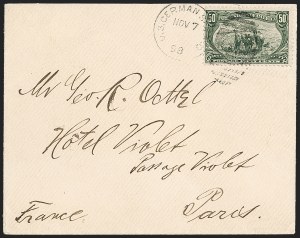 U.S. GERMAN
NOV 7
98
50 50
Mr Geo. R. Oettel
Hotel Violet
Passage Violet
Paris.
France.